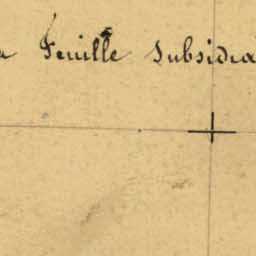 a Feuille Subsidia